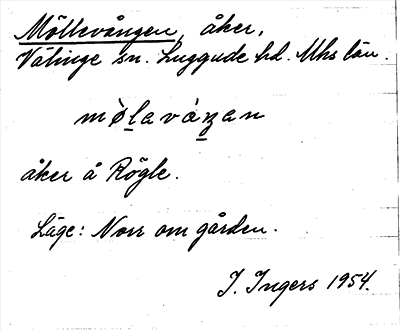 Möllevången, åker,
Välinge sn. Luggude hd. Mhs län.
mø̀laváŋan
åker å Rögle.
Läge: Norr om gården.
I. Ingers 1954.